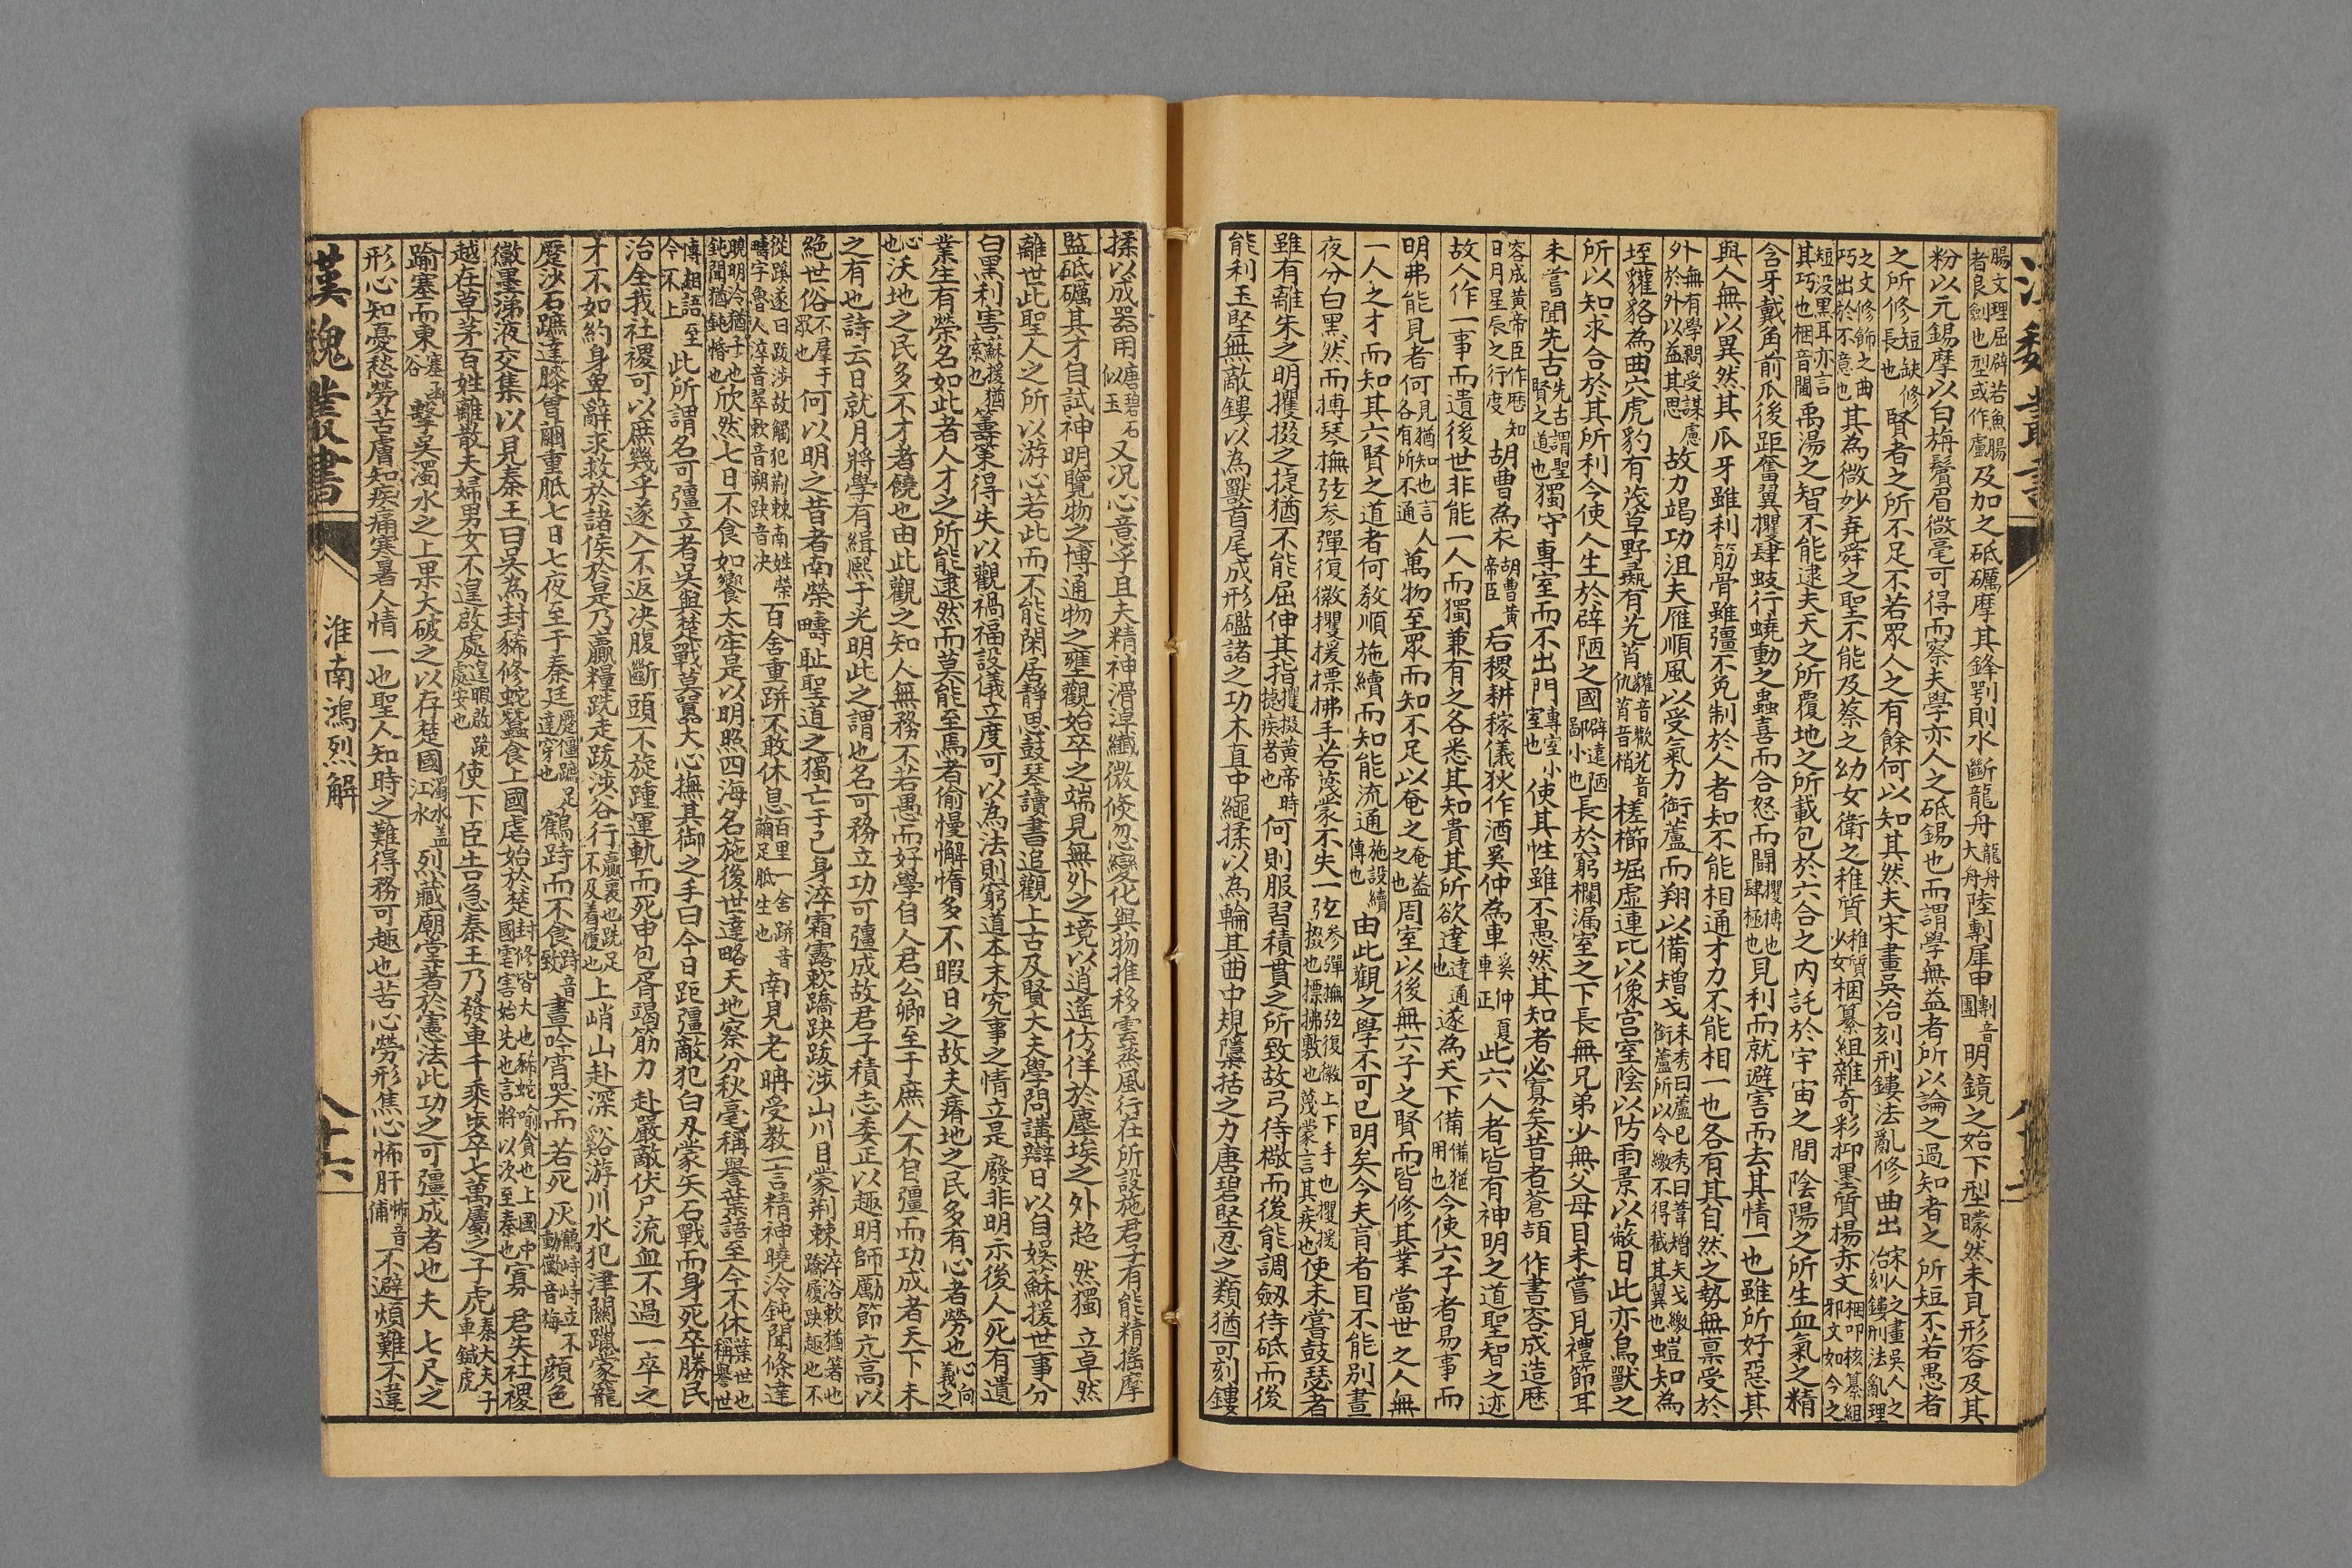 腸文理屈辟若魚腸者良劍也型或作盧及加之砥礪摩其鋒剬則水斷龍舟龍舟大舟陸剸犀甲剸音團明鏡之始下型矇然未見形容及其
粉以元錫摩以白旃鬢眉微毫可得而察夫學亦人之砥錫也而謂學無益者所以論之過知者之所短不若愚者
之所修短缺修長也賢者之所不足不若眾人之有餘何以知其然夫宋畫吳冶刻刑鏤法亂修曲出宋人之畫吳人之冶刻鏤刑法亂理
之文修飾之曲巧出於不意也其為微妙堯舜之聖不能及蔡之幼女衛之稚質稚質少女梱纂組雜奇彩抑墨質揚赤文梱叩核纂組邪文如今之
短沒黑耳亦言其巧也梱音閫禹湯之智不能逮夫天之所覆地之所載包於六合之內託於宇宙之間陰陽之所生血氣之精
含牙戴角前爪後距奮翼攫肆蚑行蟯動之蟲喜而合怒而鬪攫搏也肆極也見利而就避害而去其情一也雖所好惡其
與人無以異然其爪牙雖利筋骨雖彊不免制於人者知不能相通才力不能相一也各有其自然之勢無禀受於
外無有學問受謀慮於外以益其思故力竭功沮夫雁順風以受氣力銜蘆而翔以備矰弋未秀曰蘆已秀曰葦矰矢弋繳銜蘆所以令繳不得截其翼也螘知為
垤貛貉為曲穴虎豹有茂草野彘有艽莦貛音歡艽音仇莦音梢槎櫛堀虛連比以像宮室陰以防雨景以蔽日此亦鳥獸之
所以知求合於其所利今使人生於辟陋之國辟遠陋鄙小也長於窮櫚漏室之下長無兄弟少無父母目未嘗見禮節耳
未嘗聞先古先古謂聖賢之道也獨守專室而不出門專室小室也使其性雖不愚然其知者必寡矣昔者蒼頡作書容成造厯
容成黃帝臣作厯知日月星辰之行度胡曹為衣胡曹黃帝臣后稷耕稼儀狄作酒奚仲為車奚仲夏車正此六人者皆有神明之道聖智之迹
故人作一事而遺後世非能一人而獨兼有之各悉其知貴其所欲達達通也遂為天下備備猶用也今使六子者易事而
明弗能見者何見猶知也言人各有所不通萬物至眾而知不足以奄之奄蓋之也周室以後無六子之賢而皆修其業當世之人無
一人之才而知其六賢之道者何敎順施續而知能流通施設續傳也由此觀之學不可已明矣今夫盲者目不能別晝
夜分白黑然而搏琴撫弦參彈復徽攫援摽拂手若薎蒙不失一弦參彈撫弦復徽上下手也攫援掇也摽拂敷也薎蒙言其疾也使未嘗鼓瑟者
雖有離朱之明攫掇之捷猶不能屈伸其指攫掇黃帝時捷疾者也何則服習積貫之所致故弓待檠而後能調劒待砥而後
能利玉堅無敵鏤以為獸首尾成形礛諸之功木直中繩揉以為輪其曲中規隱栝之力唐碧堅忍之類猶可刻鏤
揉以成器用唐碧石似玉又況心意乎且夫精神滑淖纖微倏忽變化與物推移雲蒸風行在所設施君子有能精搖摩
監砥礪其才自試神明覽物之博通物之壅觀始卒之端見無外之境以逍遙仿佯於塵埃之外超然獨立卓然
離世此聖人之所以游心若此而不能閑居靜思鼓琴讀書追觀上古及賢大夫學問講辯日以自娛蘇援世事分
白黑利害蘇援猶索也籌策得失以觀禍福設儀立度可以為法則窮道本末究事之情立是廢非明示後人死有遺
業生有榮名如此者人才之所能逮然而莫能至焉者偷慢懈惰多不暇日之故夫瘠地之民多有心者勞也心向義之
心也沃地之民多不才者饒也由此觀之知人無務不若愚而好學自人君公卿至于庶人不自彊而功成者天下未
之有也詩云日就月將學有緝熙于光明此之謂也名可務立功可彊成故君子積志委正以趣明師勵節亢高以
絕世俗不羣于眾也何以明之昔者南榮疇恥聖道之獨亡于己身淬霜露欶蹻趹跋涉山川目蒙荆棘淬浴欶猶著也蹻履趹趣也不
從蹊遂曰跋涉故觸犯荆棘南姓榮疇字魯人淬音翠欶音朔趹音决百舍重跰不敢休息百里一舍跰音繭足胝生也南見老聃受教一言精神曉泠鈍聞條達
曉明泠猶了也鈍聞猶鈍惛也欣然七日不食如饗太牢是以明照四海名施後世達略天地察分秋毫稱譽葉語至今不休葉世也稱譽世
傳相語至今不止此所謂名可彊立者吳與楚戰莫囂大心撫其御之手曰今日距彊敵犯白刃蒙矢石戰而身死卒勝民
治全我社稷可以庶幾乎遂入不返决腹斷頭不旋踵運軌而死申包胥竭筋力赴嚴敵伏尸流血不過一卒之
才不如約身卑辭求救於諸侯於是乃贏糧跣走跋涉谷行贏裹也跣足不及着履也上峭山赴深谿游川水犯津關躐蒙籠
蹷沙石蹠達膝曾繭重胝七日七夜至于秦廷蹷僵蹠足達穿也鶴跱而不食跱音致晝吟宵哭而若死灰鶴跱跱立不動黴音梅顏色
黴墨涕液交集以見秦王曰吳為封豨修蛇蠶食上國虐始於楚封修皆大也豨蛇喻貪也上國中國虐害始先也言將以次至秦也寡君失社稷
越在草茅百姓離散夫婦男女不遑啟處遑暇啟跪處安也使下臣告急秦王乃發車千乘步卒七萬屬之子虎秦大夫子車鍼虎
踰塞而東塞函谷擊吳濁水之上果大破之以存楚國濁水蓋江水烈藏廟堂著於憲法此功之可彊成者也夫七尺之
形心知憂愁勞苦膚知疾痛寒暑人情一也聖人知時之難得務可趣也苦心勞形焦心怖肝怖音俌不避煩難不違
漢魏叢書
淮南鴻烈解